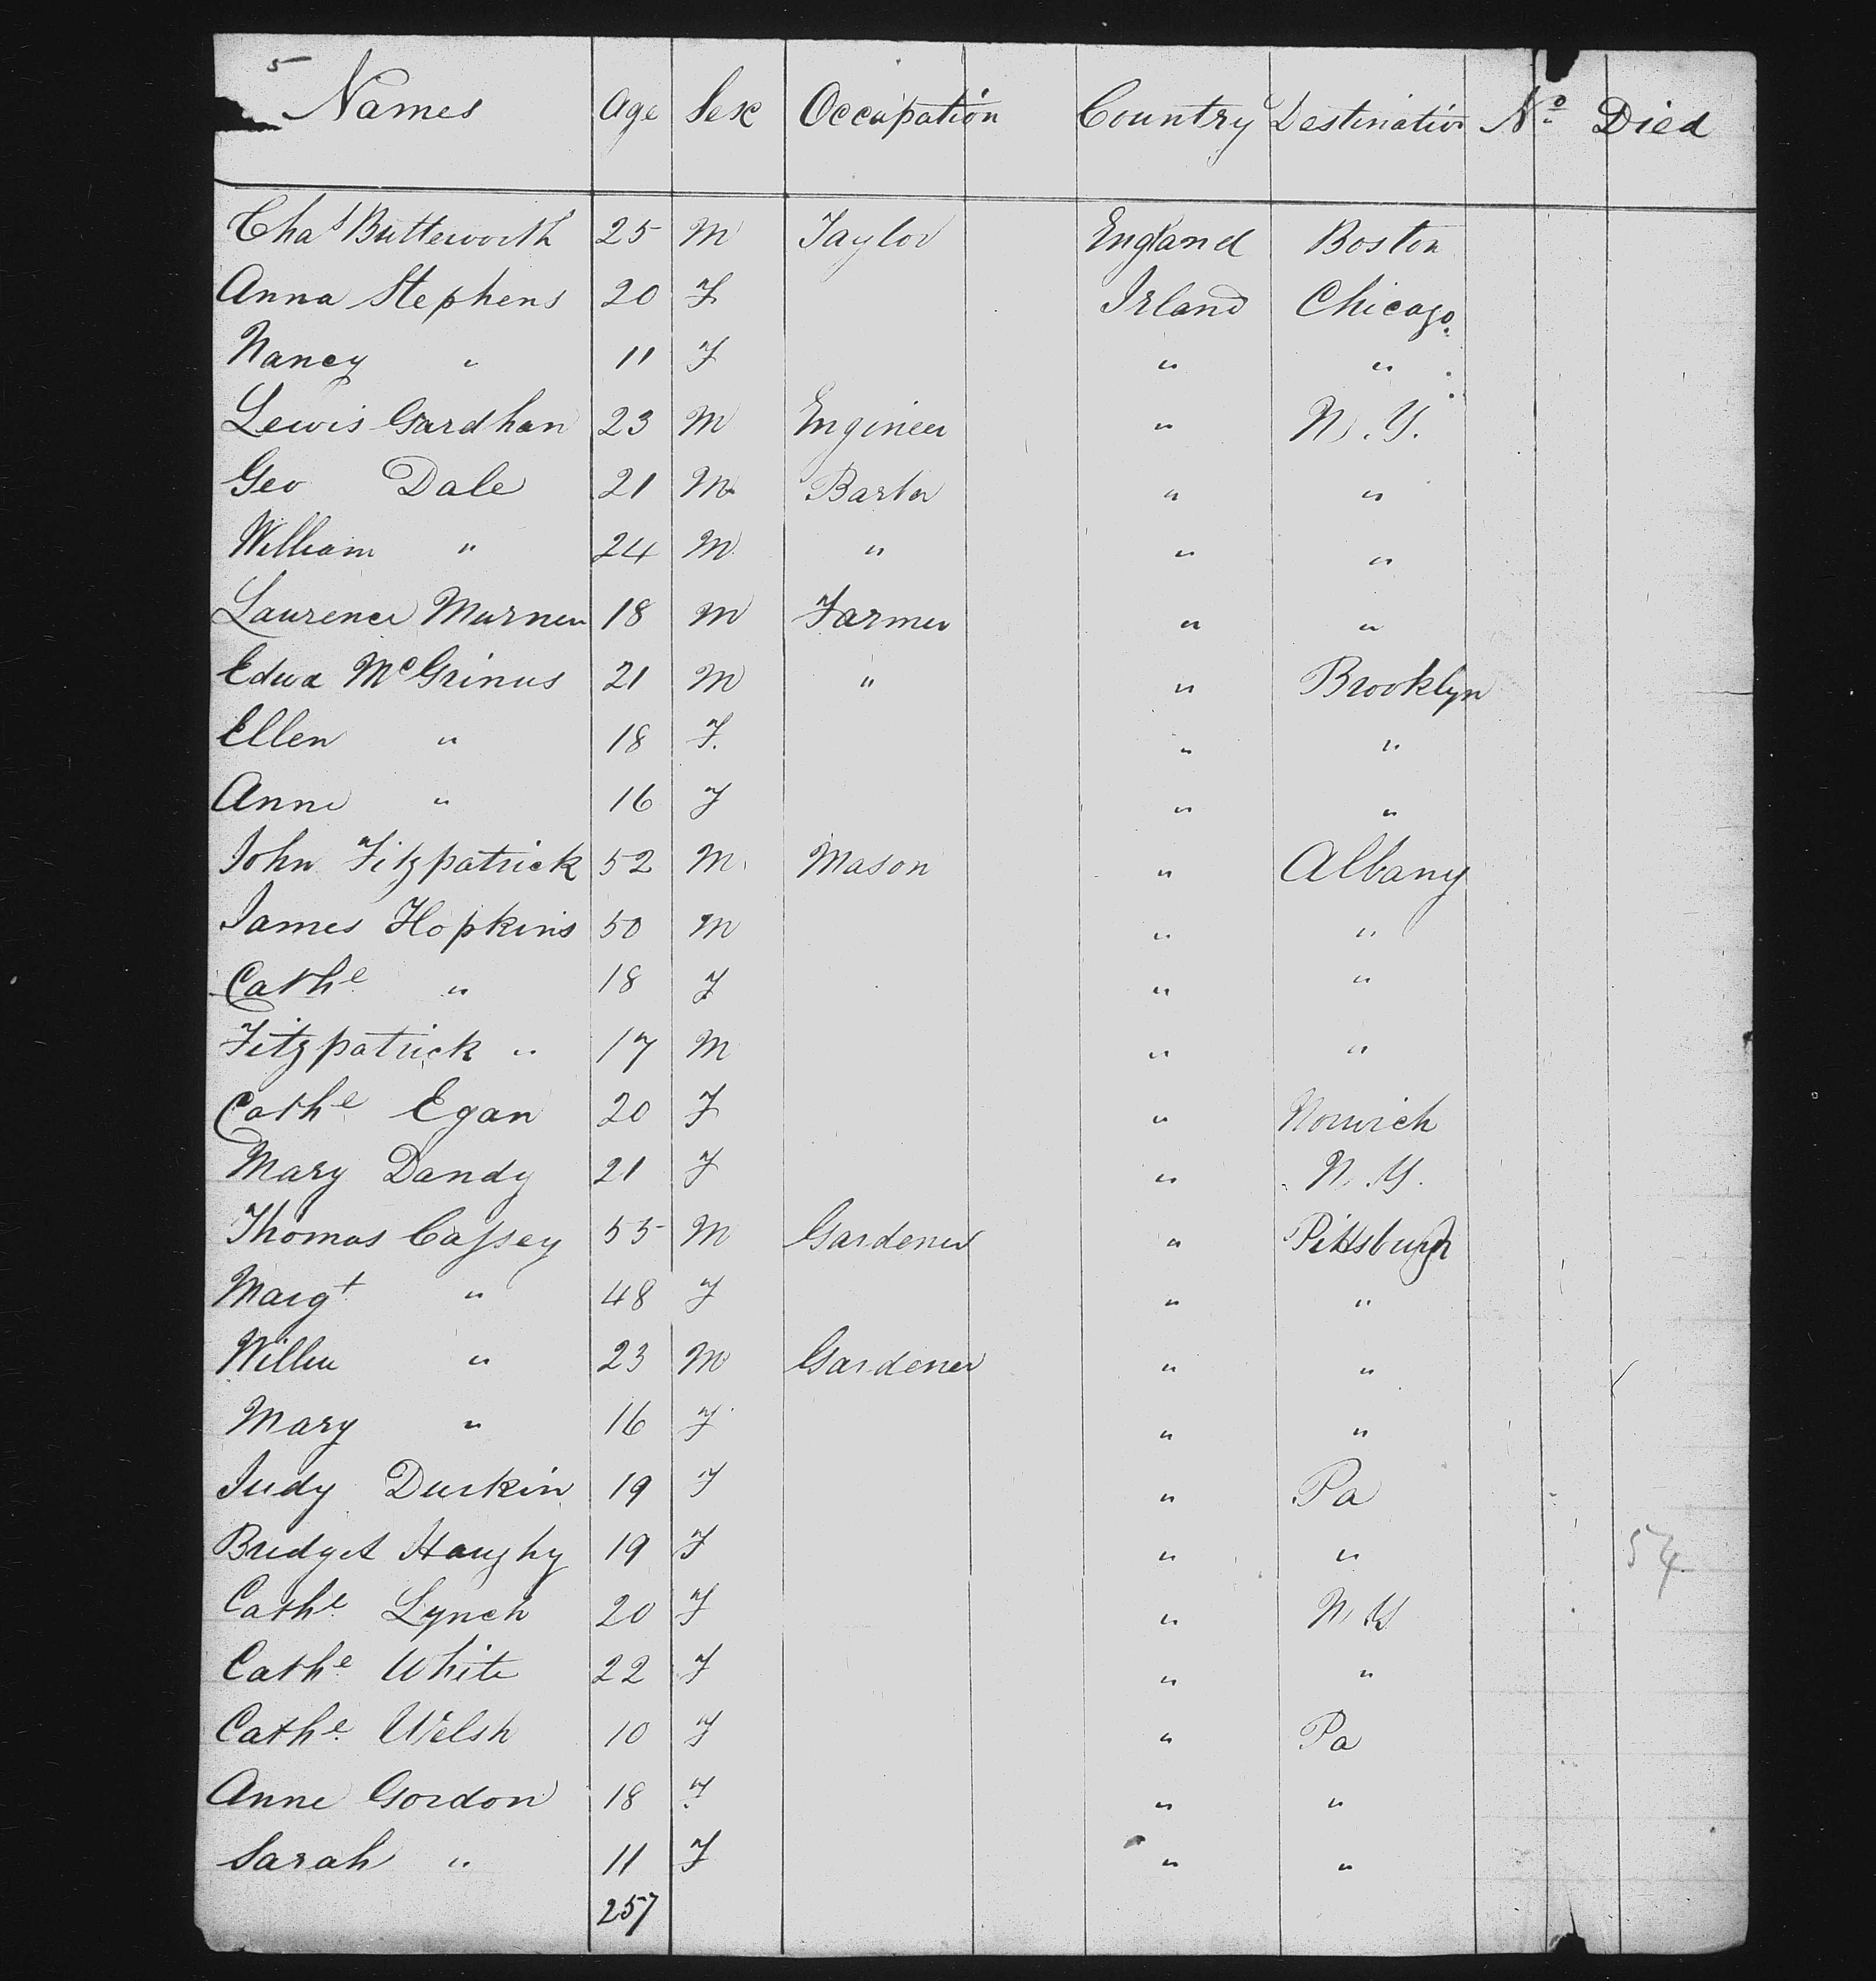 5
Names Age Sex Occupation Country Destination No Died
Chas Butterworth 25 M Taylor England Boston
Anna Stephens 20 F Irland Chicago
Nancy " 11 F " "
Lewis Gardhan 23 M Engineer " N.Y.
Geo Dale 21 M Barber " "
William " 24 M " " "
Laurence Murnen 18 M Farmer " "
Edwd McGrinus 21 M " " Brooklyn
Ellen " 18 F. " "
Anne " 16 F " "
John Fitzpatrick 52 M Mason " Albany
James Hopkins 50 M " "
Cathe " 18 F " "
Fitzpatrick " 17 M " "
Cathe Egan 20 F " Norwich
Mary Dandy 21 F " N.Y.
Thomas Cassey 55 M Gardener " Pittsburgh
Margt " 48 F " "
Willm " 23 M Gardener " "
Mary " 16 F " "
Judy Durkin 19 F " Pa
Bridget Haughy 19 F " "
54
Cathe Lynch 20 F " N.Y
Cathe White 22 F " "
Cathe Welsh 10 F " Pa
Anne Gordon 18 F " "
Sarah " 11 F " "
257